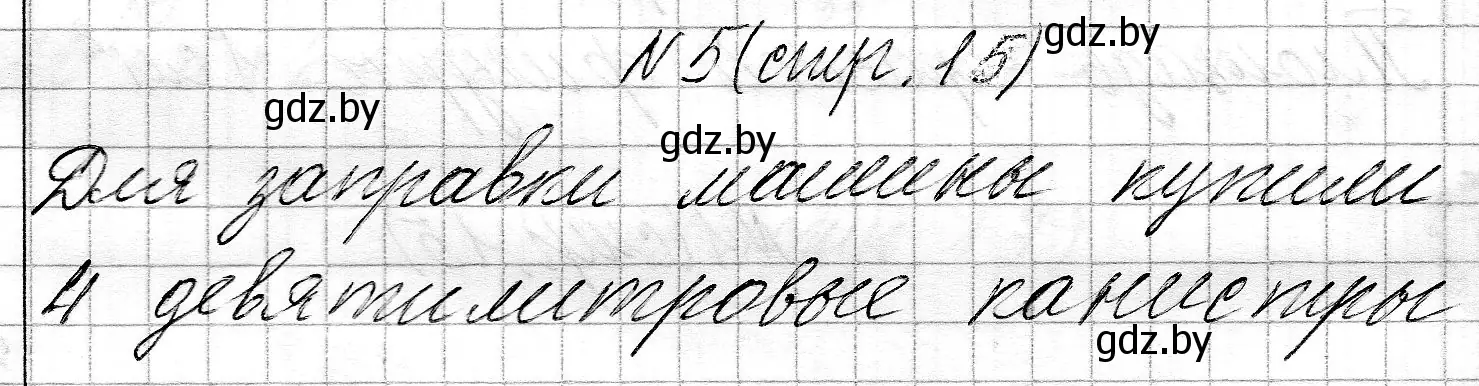 N 5 (стр. 15)
gdz.by
gdz.by
gdz.by
Для заправки машины купили
4 девятилитровые канистры
gdz.by